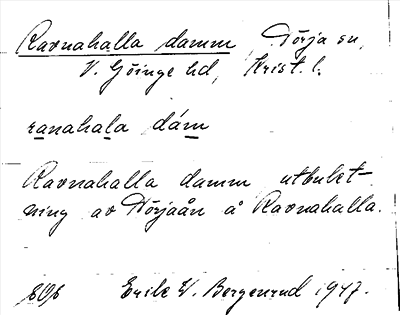 Ravnahalla damm, Nörja sn,
V. Göinge hd, Krist. l.
ranahala dám
Ravnahalla damm utbukt-
ning av Nörjaån å Ravnahalla.
Erik V. Bergenrud 1947.